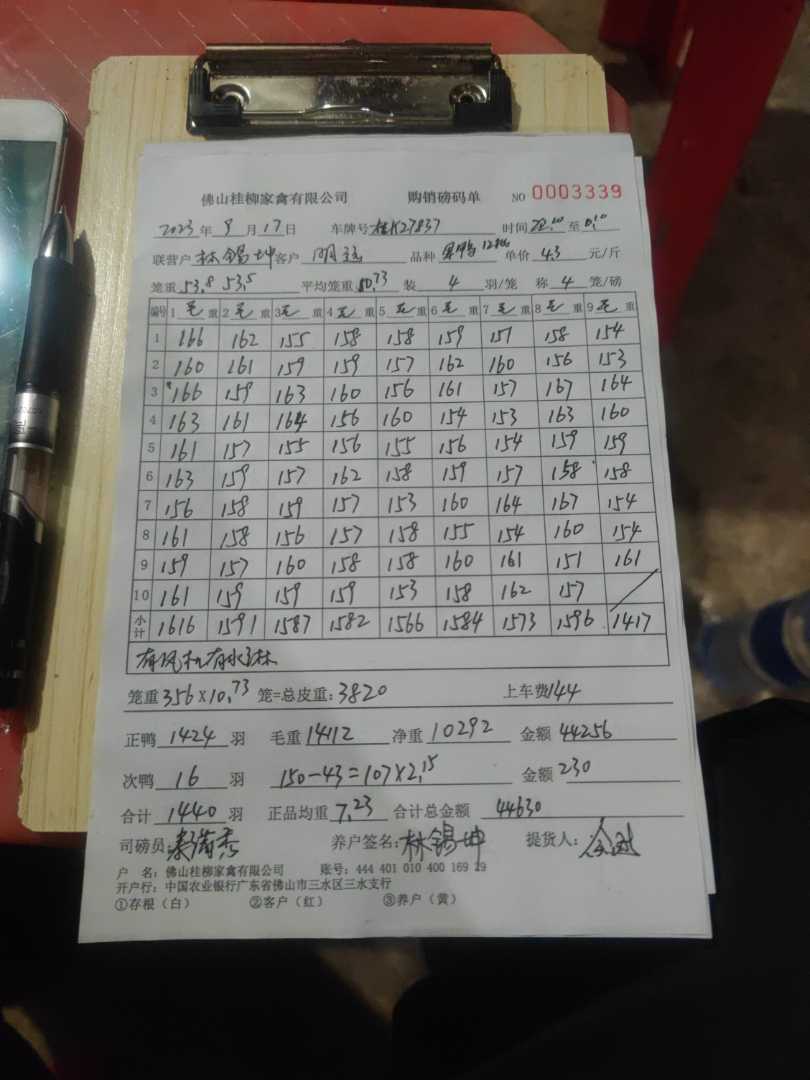 佛山桂柳家禽有限公司 购销磅码单 NO 0003339
2023年9月17日 车牌号 桂K27837 时间 至
联营户 林锡坤 客户 明 品种 单价 4.3 元/斤
笼重 53.8 53.5 平均笼重 10.73 装 4 羽/笼 称 4 笼/磅
编号 1 毛重 2 毛重 3 毛重 4 毛重 5 毛重 6 毛重 7 毛重 8 毛重 9 毛重
1 166 162 155 158 158 159 151 158 154
2 160 161 159 159 157 162 160 156 153
3 166 159 163 160 156 161 157 167 164
4 163 161 164 156 160 154 153 163 160
5 161 157 155 156 155 156 154 159 159
6 163 159 157 162 158 159 157 158 158
7 156 158 159 157 153 160 164 167 154
8 161 158 156 157 158 155 154 160 154
9 159 157 160 158 158 160 161 151 161
10 161 159 159 159 153 158 162 157
小计 1616 1591 1587 1582 1566 1584 1573 1596 1417
有风机有水淋
笼重 356×10.73 笼=总皮重: 3820 上车费 144
正鸭 1424 羽 毛重 14112 净重 10292 金额 44256
次鸭 16 羽 150-43=107×2.15 金额 230
合计 1440 羽 正品均重 7.23 合计总金额 44630
司磅员: 养户签名: 林锡坤 提货人:
户 名: 佛山桂柳家禽有限公司 账号: 444 401 010 400 169 29
开户行: 中国农业银行广东省佛山市三水区三水支行
①存根(白) ②客户(红) ③养户(黄)